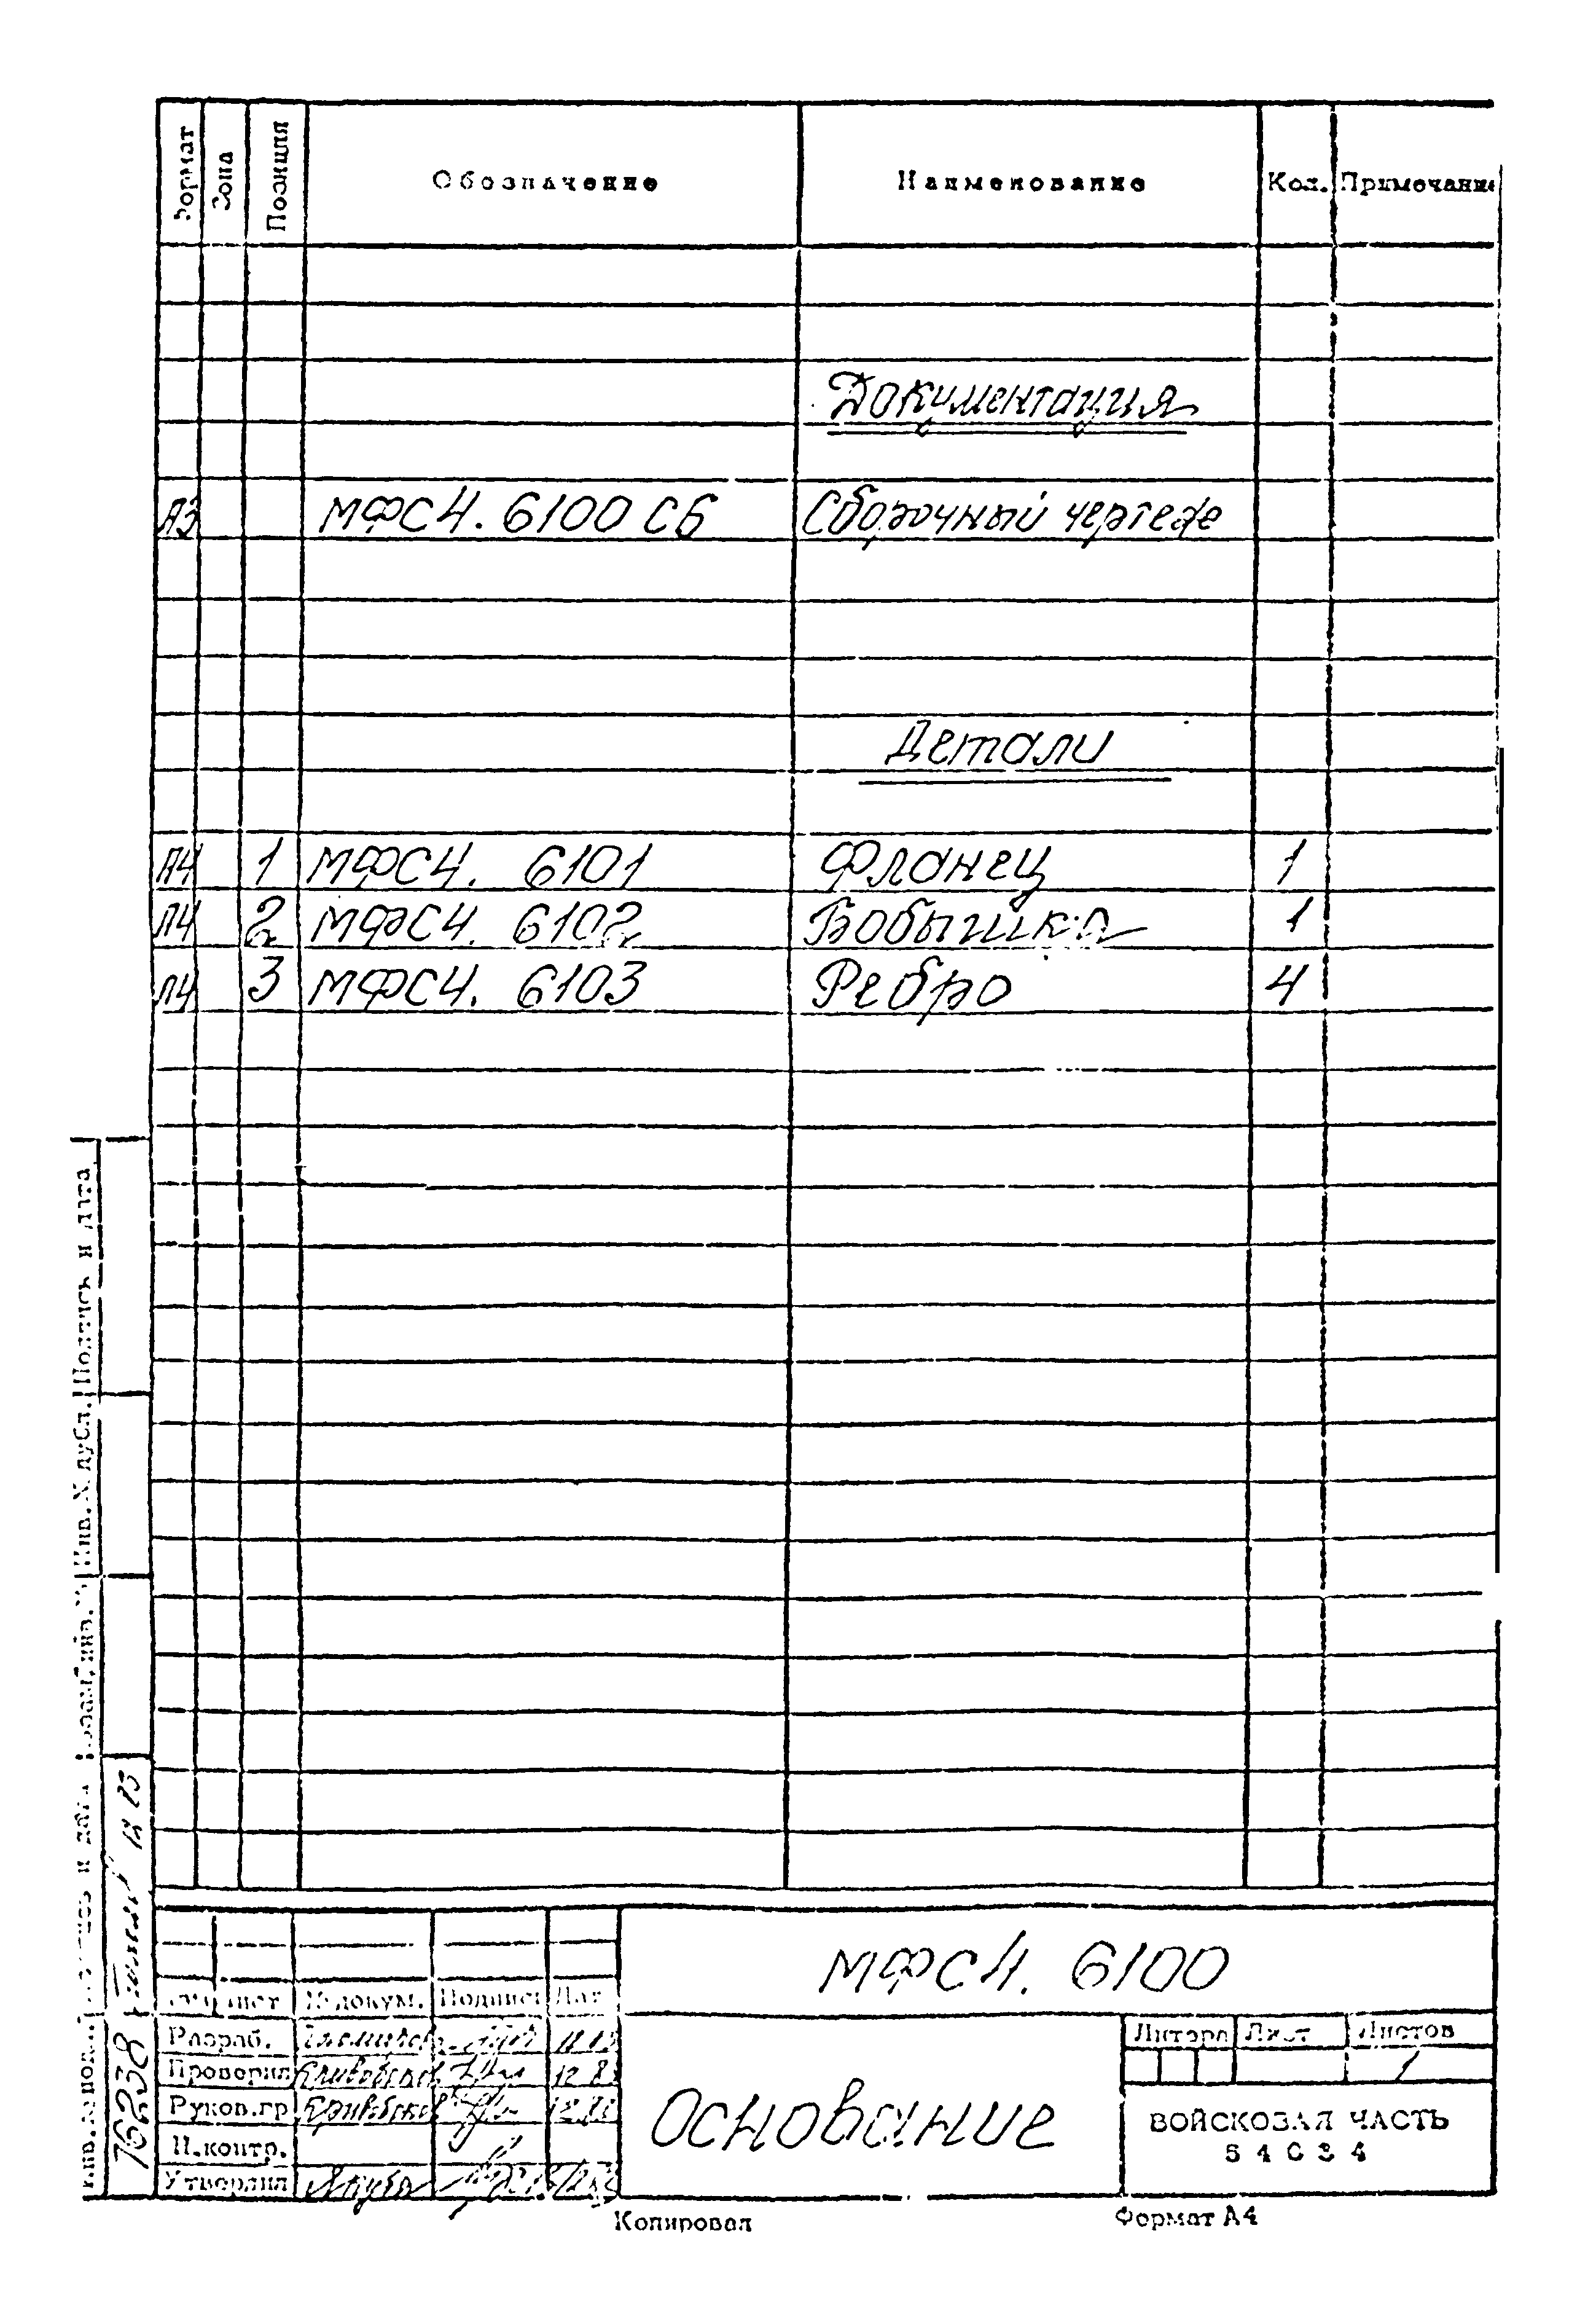 Формат Зона Позиция Обозначение Наименование Кол. Примечание
Документация
А3 МФС4. 6100 СБ Сборочный чертеж
Детали
А4 1 МФС4. 6101 Фланец 1
А4 2 МФС4. 6102 Бобышка 1
А4 3 МФС4. 6103 Ребро 4
Подпись и дата
Инв. № дубл.
Взам. инв. №
Подпись и дата
12 83
Инв. № подл.
76238
МФС4. 6100
Лист № докум. Подпись Дат
Разраб.
Проверил 12 83
Руков.гр
Н.контр.
Утвердил
Основание
Литера Лист Листов
1
ВОЙСКОВАЯ ЧАСТЬ
Копировал Формат А4